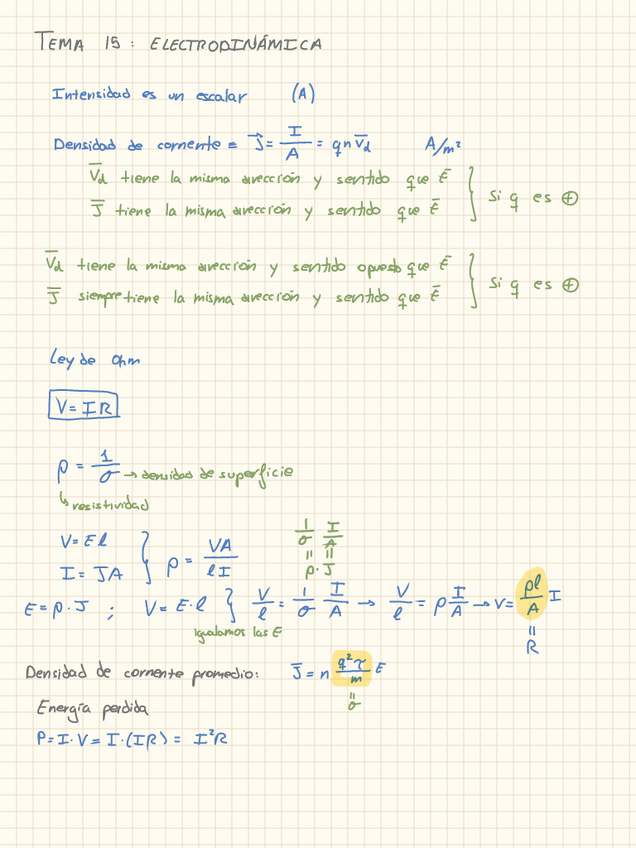 TEMA 15: ELECTRODINÁMICA
Intensidad es un escalar (A)
Densidad de corriente = J⃗ = I/A = qn v̅d A/m²
V̅d tiene la misma dirección y sentido que E̅
J̅ tiene la misma dirección y sentido que E̅ } si q es ⊕
V̅d tiene la misma dirección y sentido opuesto que E̅
J̅ siempre tiene la misma dirección y sentido que E̅ } si q es ⊕
Ley de Ohm
V = IR
ρ = 1/σ → densidad de superficie
↳ resistividad
V = El
I = JA } ρ = VA/lI
1/σ I/A
= =
ρ · J
E = ρ · J ; V = E · l } V/l = 1/σ I/A → V/l = ρ I/A → V = ρl/A I
igualamos las E
=
R
Densidad de corriente promedio: J̅ = n q²τ/m E
=
σ
Energía perdida
P = I · V = I · (IR) = I²R